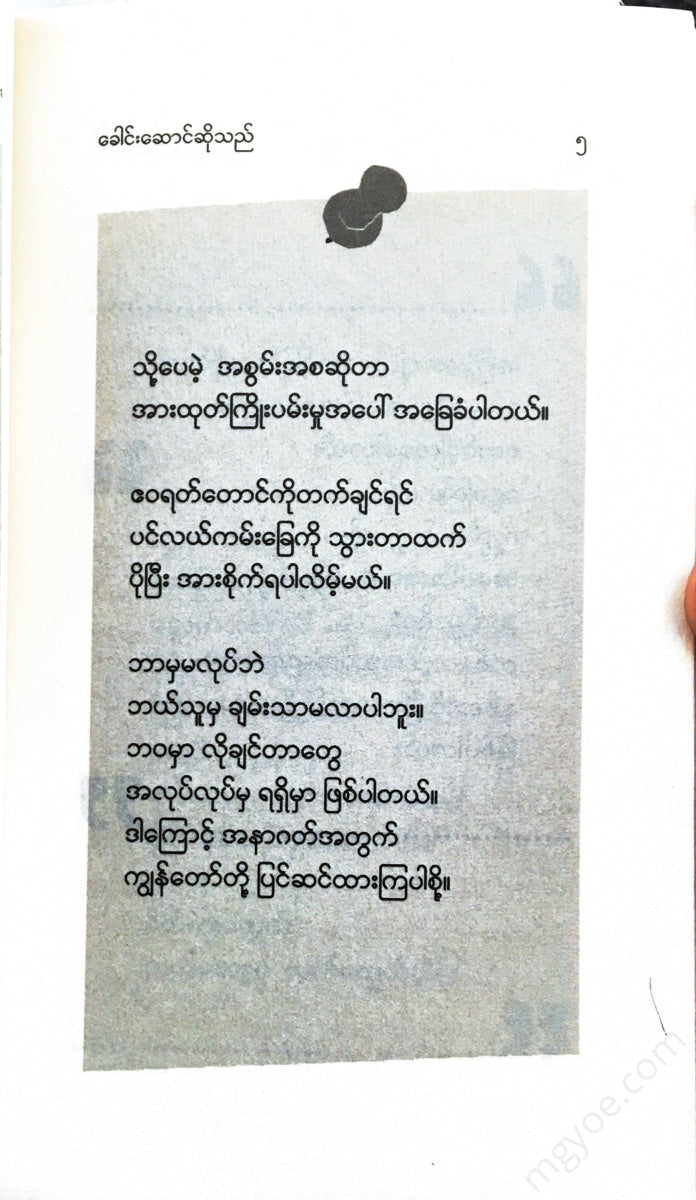 ခေါင်းဆောင်ဆိုသည် ၅
သို့ပေမဲ့ အစွမ်းအစဆိုတာ
အားထုတ်ကြိုးပမ်းမှုအပေါ် အခြေခံပါတယ်။
ဧဝရတ်တောင်ကိုတက်ချင်ရင်
ပင်လယ်ကမ်းခြေကို သွားတာထက်
ပိုပြီး အားစိုက်ရပါလိမ့်မယ်။
ဘာမှမလုပ်ဘဲ
ဘယ်သူမှ ချမ်းသာမလာပါဘူး။
ဘဝမှာ လိုချင်တာတွေ
အလုပ်လုပ်မှ ရရှိမှာ ဖြစ်ပါတယ်။
ဒါကြောင့် အနာဂတ်အတွက်
ကျွန်တော်တို့ ပြင်ဆင်ထားကြပါစို့။
mgyoe.com